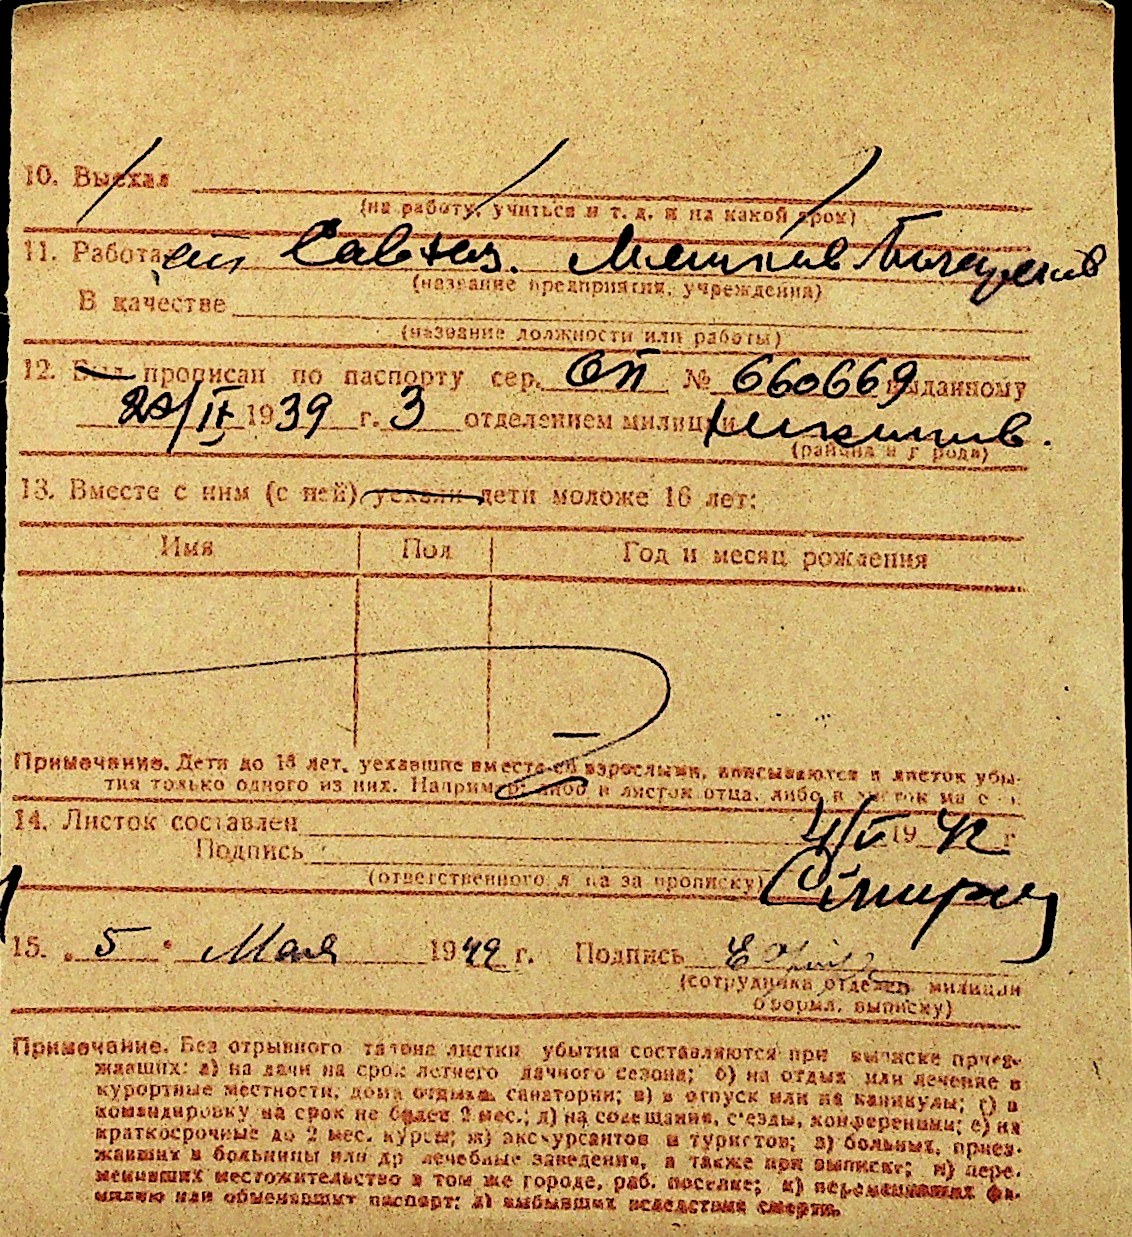 10. Выехал
(на работу, учиться и т. д. и на какой срок)
11. Работает
(название предприятия, учреждения)
В качестве
(название должности или работы)
12. Был прописан по паспорту сер. ОП № 660669 выданному
1939 г. 3 отделением милиции
(района и города)
13. Вместе с ним (с ней) уехали дети моложе 16 лет:
Имя Пол Год и месяц рождения
Примечание. Дети до 16 лет, уехавшие вместе со взрослыми, вписываются в листок убы-
тия только одного из них. Например: либо в листок отца, либо в листок матери.
14. Листок составлен 4/V 1942 г
Подпись
(ответственного лица за прописку)
15. 5 Мая 1942 г. Подпись
(сотрудника отделен. милиции
оформл. выписку)
Примечание. Без отрывного талона листки убытия составляются при выписке приез-
жавших: а) на дачи на срок летнего дачного сезона; б) на отдых или лечение в
курортные местности, дома отдыха, санатории; в) в отпуск или на каникулы; г) в
командировку на срок не более 2 мес.; д) на совещания, с'езды, конференции; е) на
краткосрочные до 2 мес. курсы; ж) экскурсантов и туристов; з) больных, приез-
жавших в больницы или др лечебные заведения, а также при выписке; и) пере-
менивших местожительство в том же городе, раб. поселке; к) переменивших фа-
милию или обменявших паспорт; л) выбывших вследствие смерти.